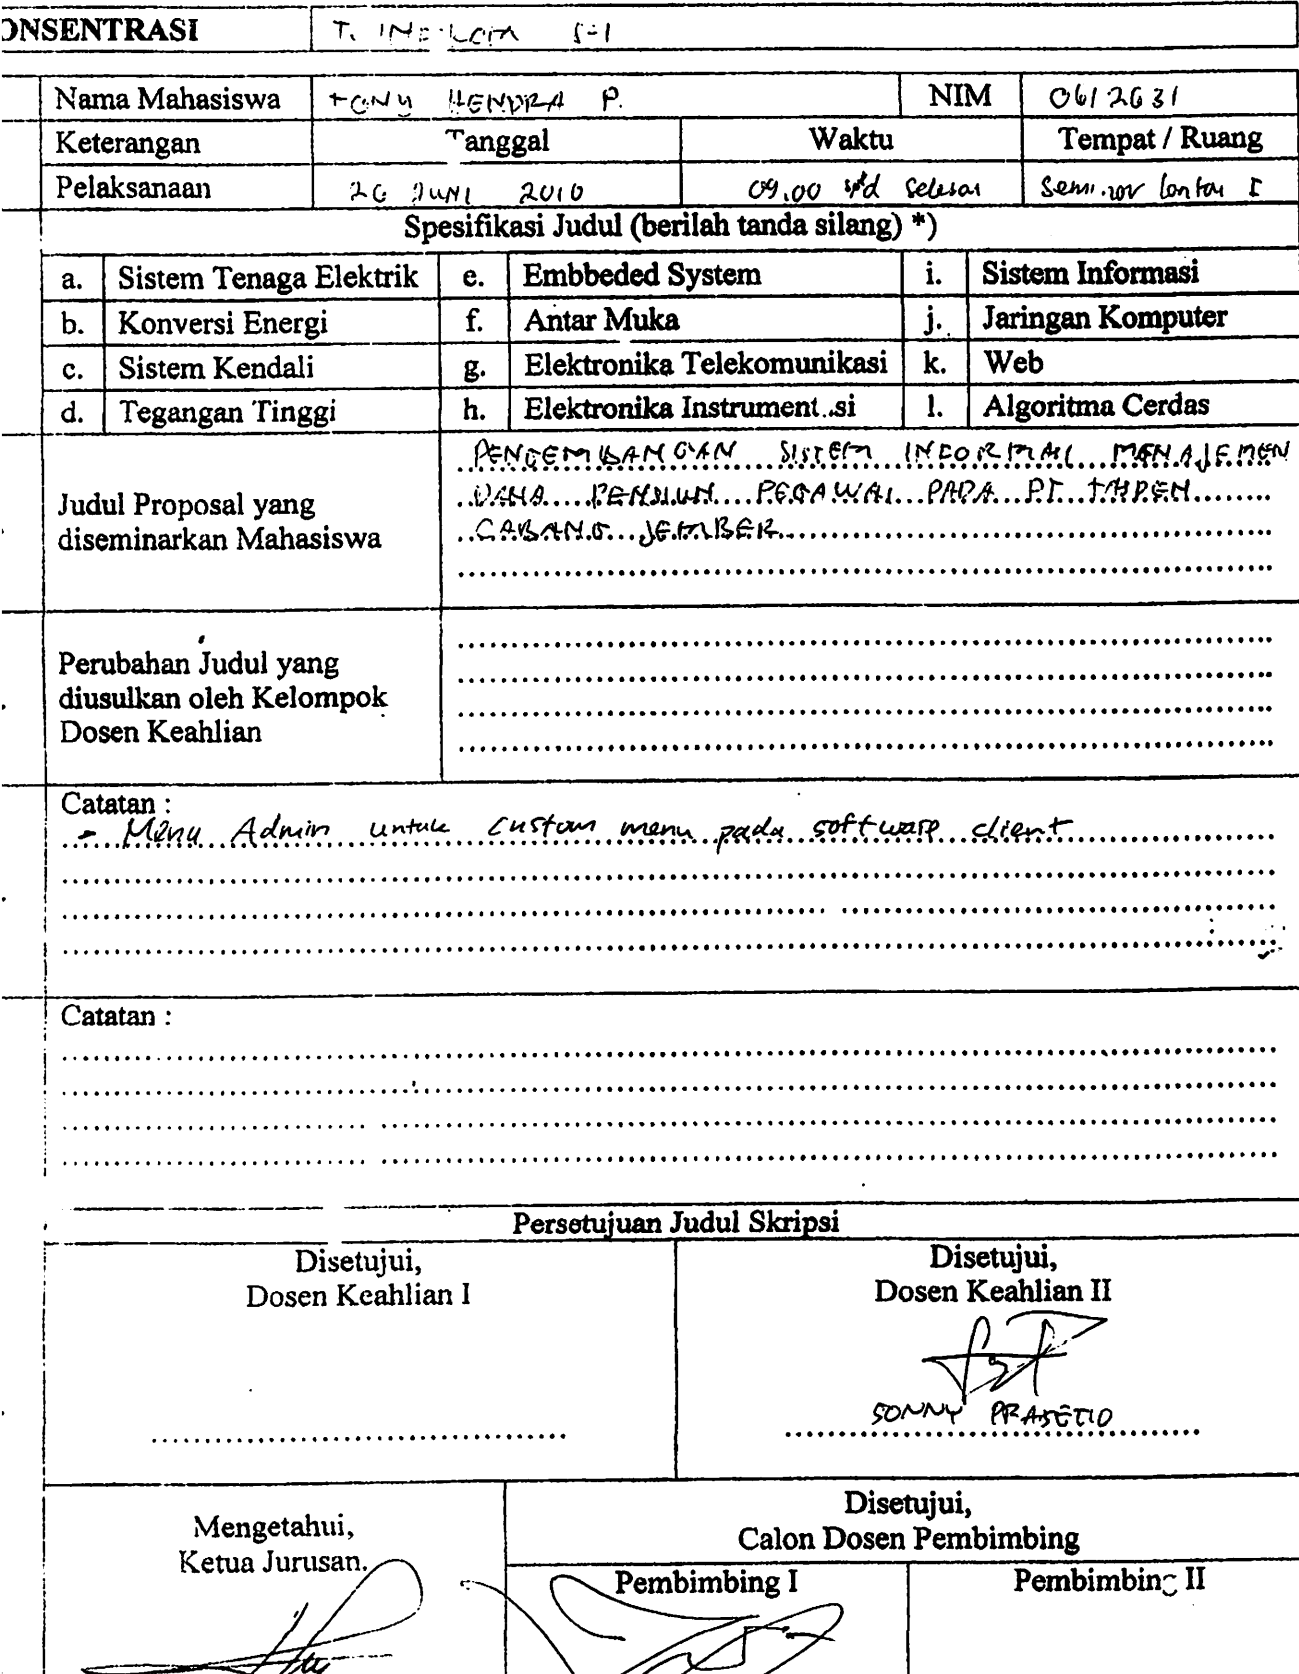 ONSENTRASI T. S-1
Nama Mahasiswa TONY HENDRA P. NIM 0612631
Keterangan Tanggal Waktu Tempat / Ruang
Pelaksanaan 26 JUNI 2010 09.00 s/d selesai Seminar lantai I
Spesifikasi Judul (berilah tanda silang) *)
a. Sistem Tenaga Elektrik e. Embbeded System i. Sistem Informasi
b. Konversi Energi f. Antar Muka j. Jaringan Komputer
c. Sistem Kendali g. Elektronika Telekomunikasi k. Web
d. Tegangan Tinggi h. Elektronika Instrumentasi l. Algoritma Cerdas
Judul Proposal yang
diseminarkan Mahasiswa
PENGEMBANGAN SISTEM INFORMASI MANAJEMEN
DANA PENSIUN PEGAWAI PADA PT. TASPEN
CABANG JEMBER
Perubahan Judul yang
diusulkan oleh Kelompok
Dosen Keahlian
Catatan :
- Menu Admin untuk custom menu pada software client
Catatan :
Persetujuan Judul Skripsi
Disetujui,
Dosen Keahlian I
Disetujui,
Dosen Keahlian II
SONNY PRASETIO
Mengetahui,
Ketua Jurusan.
Disetujui,
Calon Dosen Pembimbing
Pembimbing I Pembimbing II